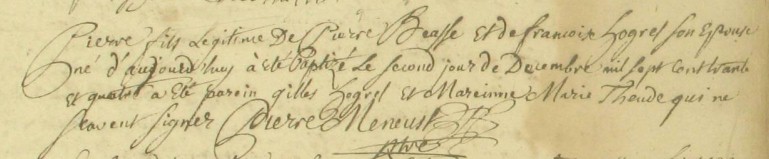 Pierre fils Legitime De Pierre Beasse Et de francoise hogrel son Epouse
né d'aujourd huy à eté baptizé Le second jour de Decembre mil sept cent trante
et quatre a eté parein gilles hogrel Et Mareinne Marie Theude qui ne
scavent signer Pierre Meneust
ptre